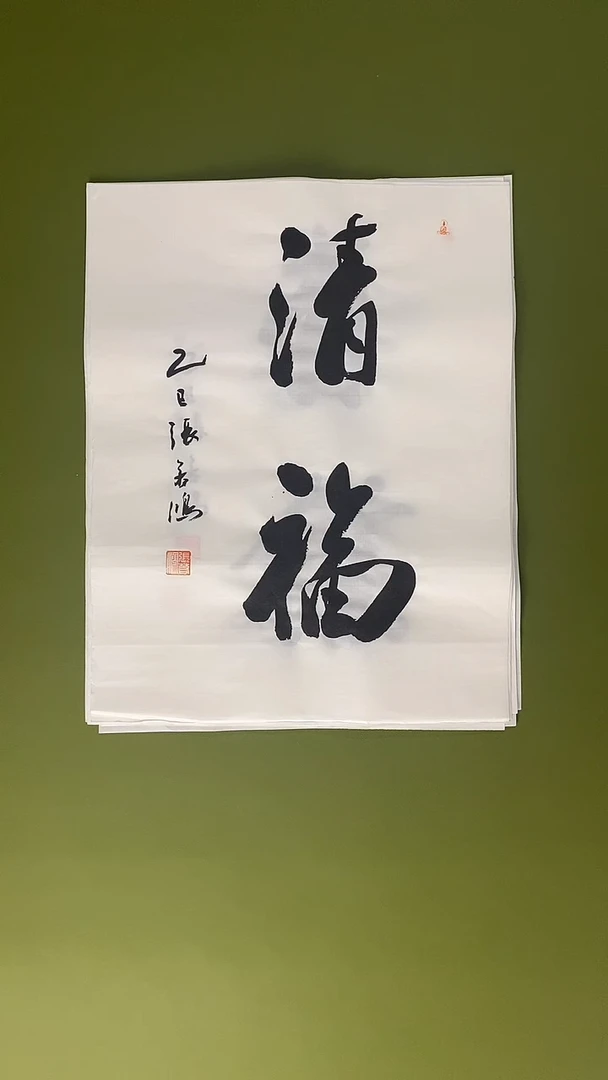 清福
乙巳張若鴻